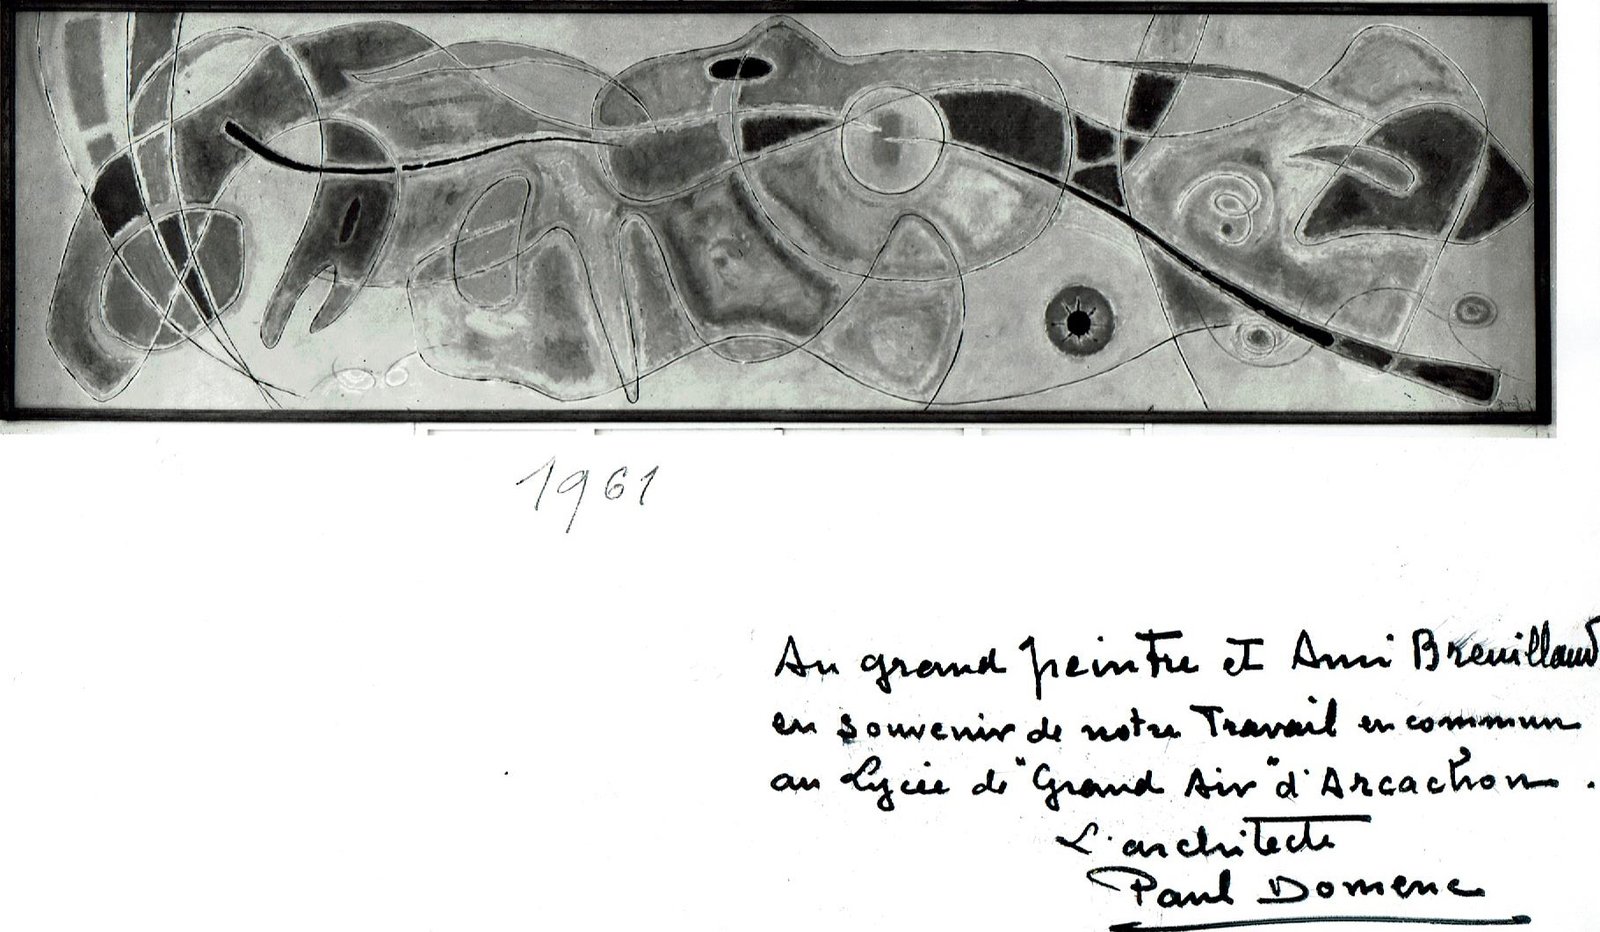 1961
Au grand peintre et Ami Breuillaud
en souvenir de notre Travail en commun
au Lycée de "Grand Air" d'Arcachon.
L'architecte
Paul Domenc